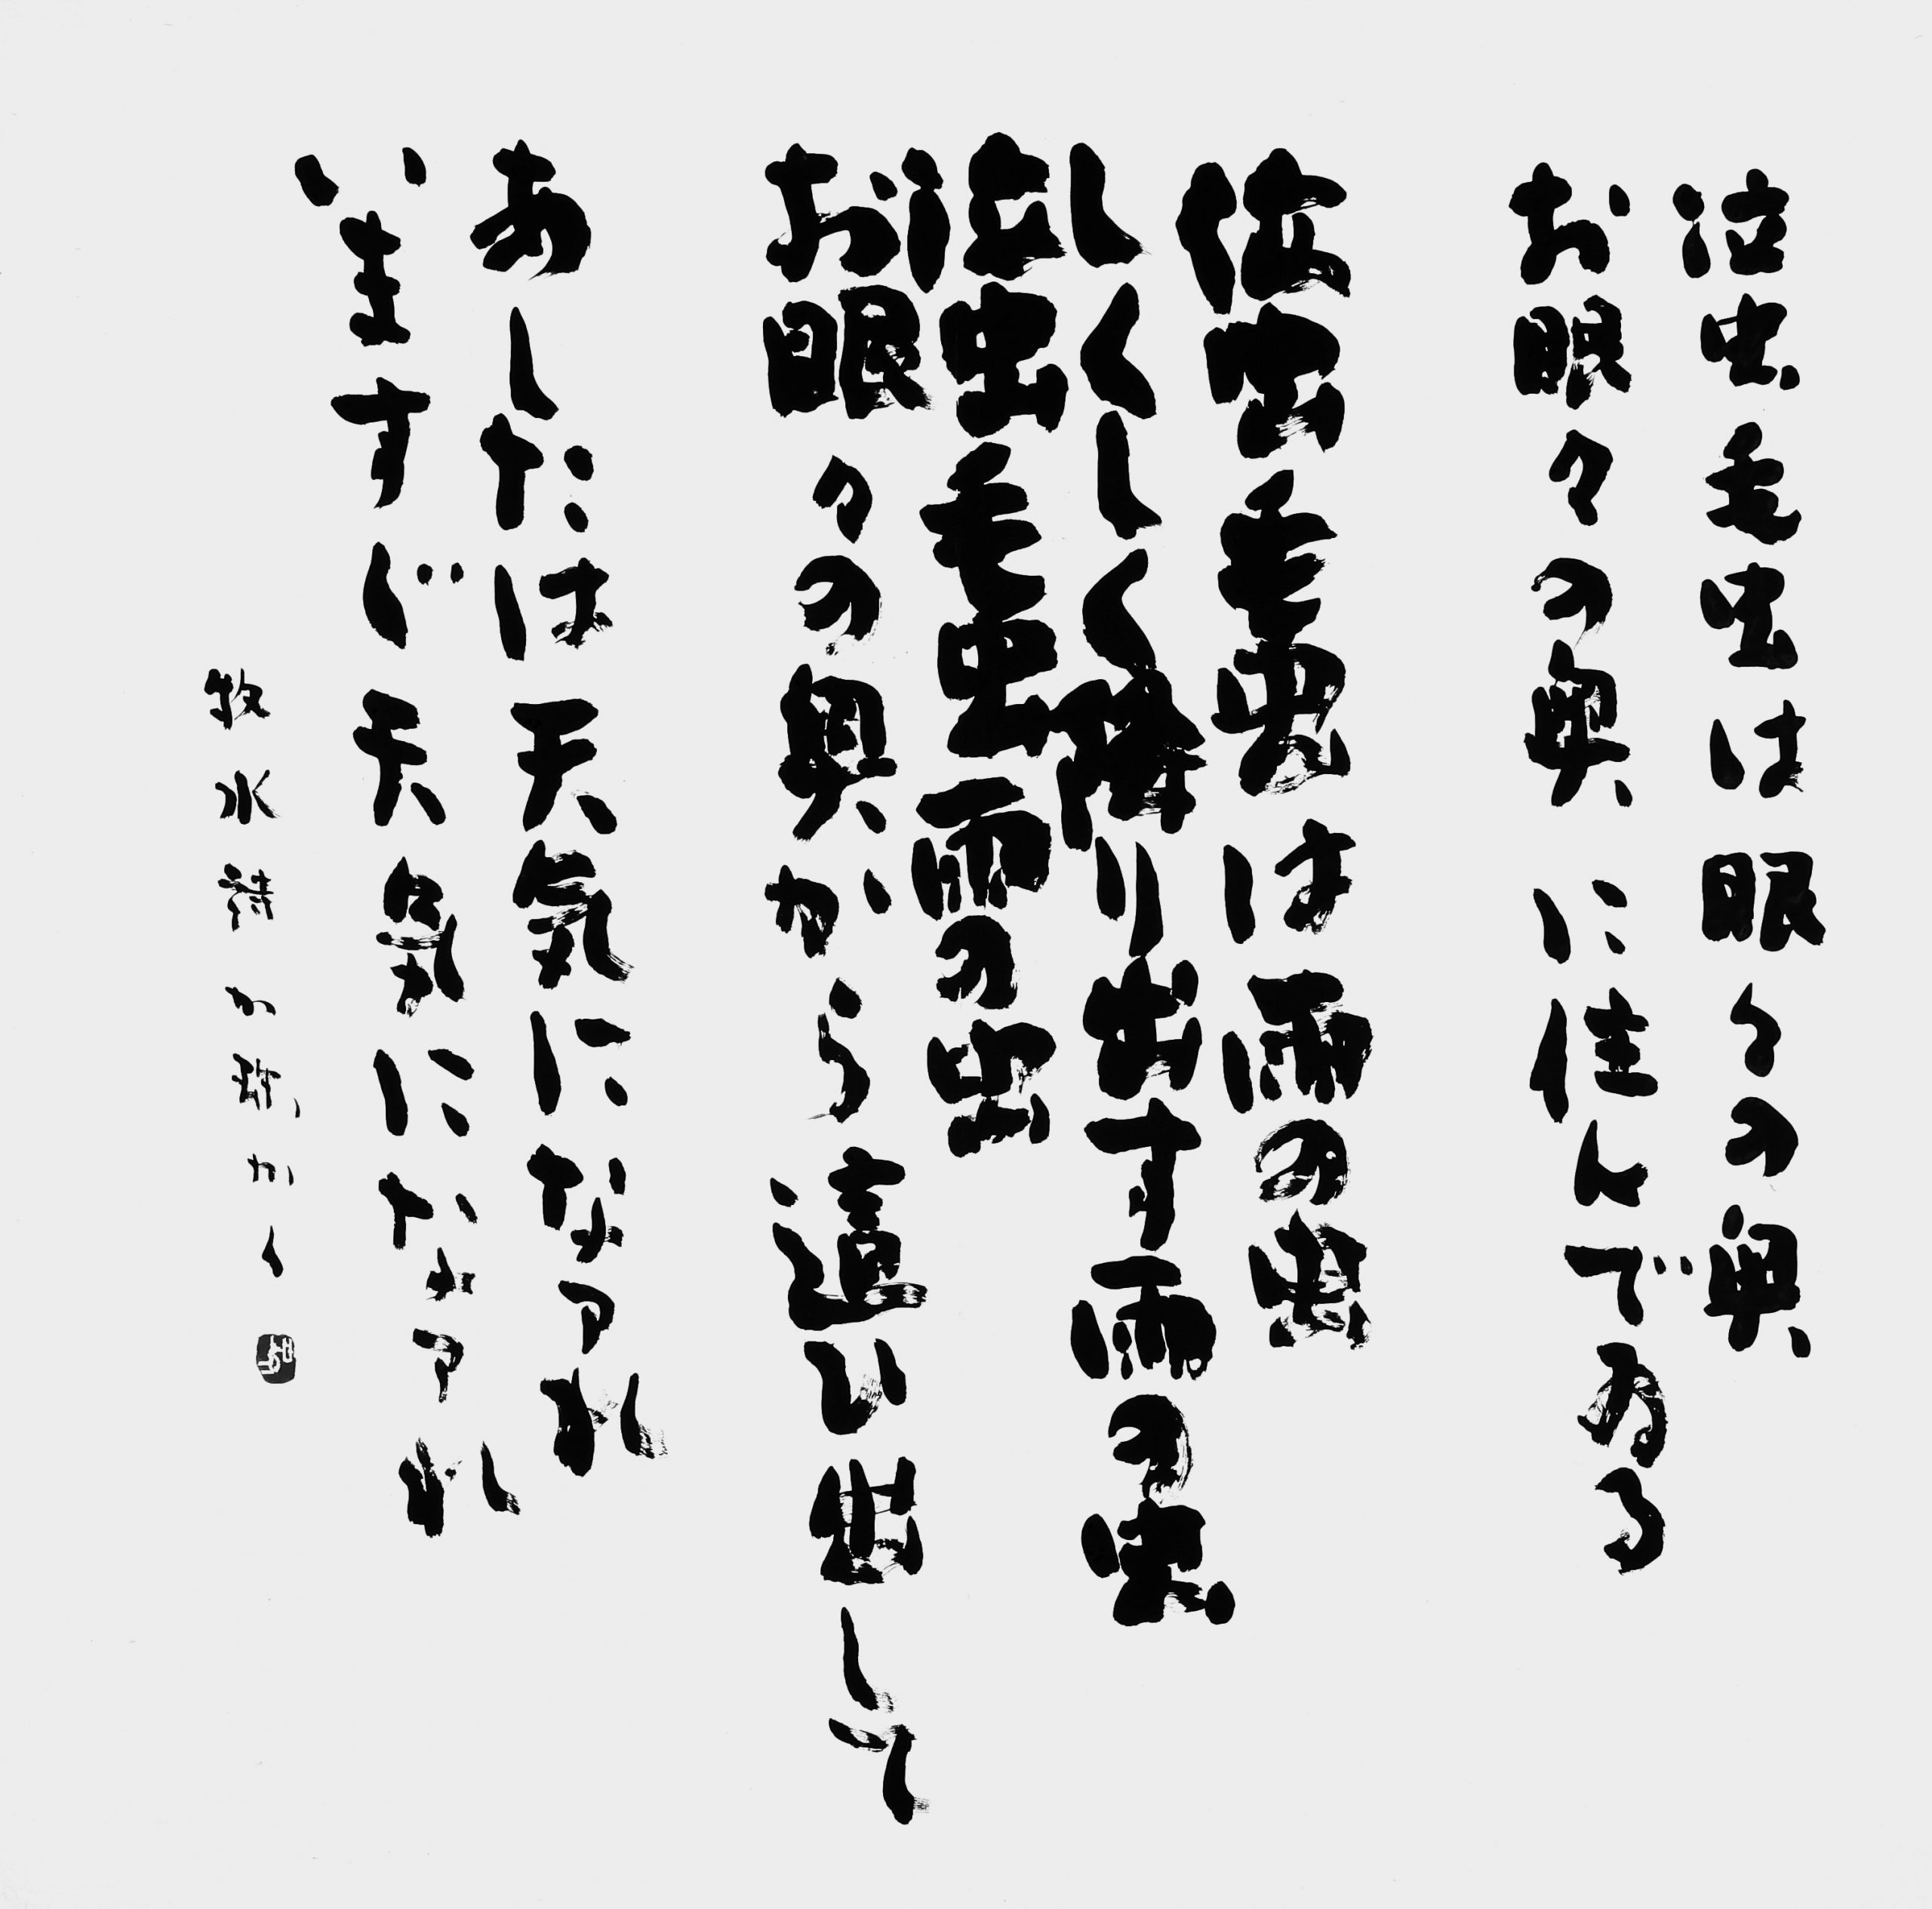 泣虫毛虫は眼々の奥、
お眼々の奥に住んでゐる
泣虫毛虫は雨の虫
しくしく降り出す雨の虫
泣虫毛虫雨の虫
お眼々の奥から這ひ出して
あしたは天気になァれ
いますぐ天気になァれ
牧水詩
かく